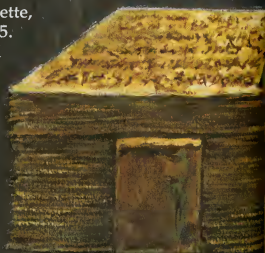 ette,
5.